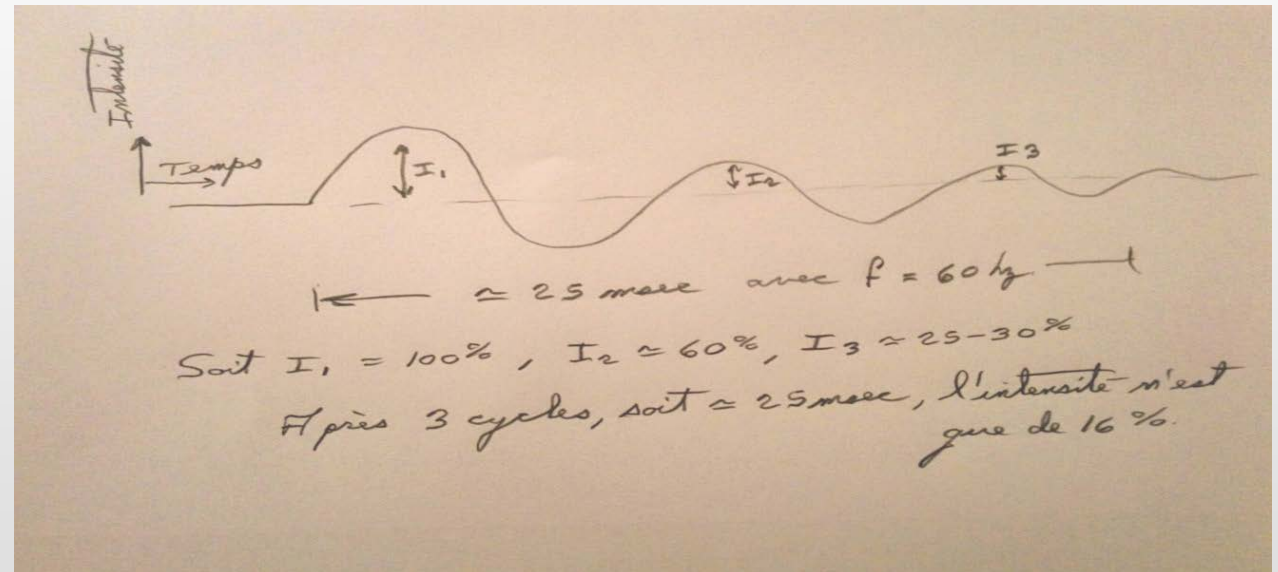 Intensité
Temps
I1
I2
I3
≃ 25 msec avec f = 60 hz
Soit I1 = 100% , I2 ≃ 60%, I3 ≃ 25-30%
Après 3 cycles, soit ≃ 25 msec, l'intensité n'est
que de 16 %.